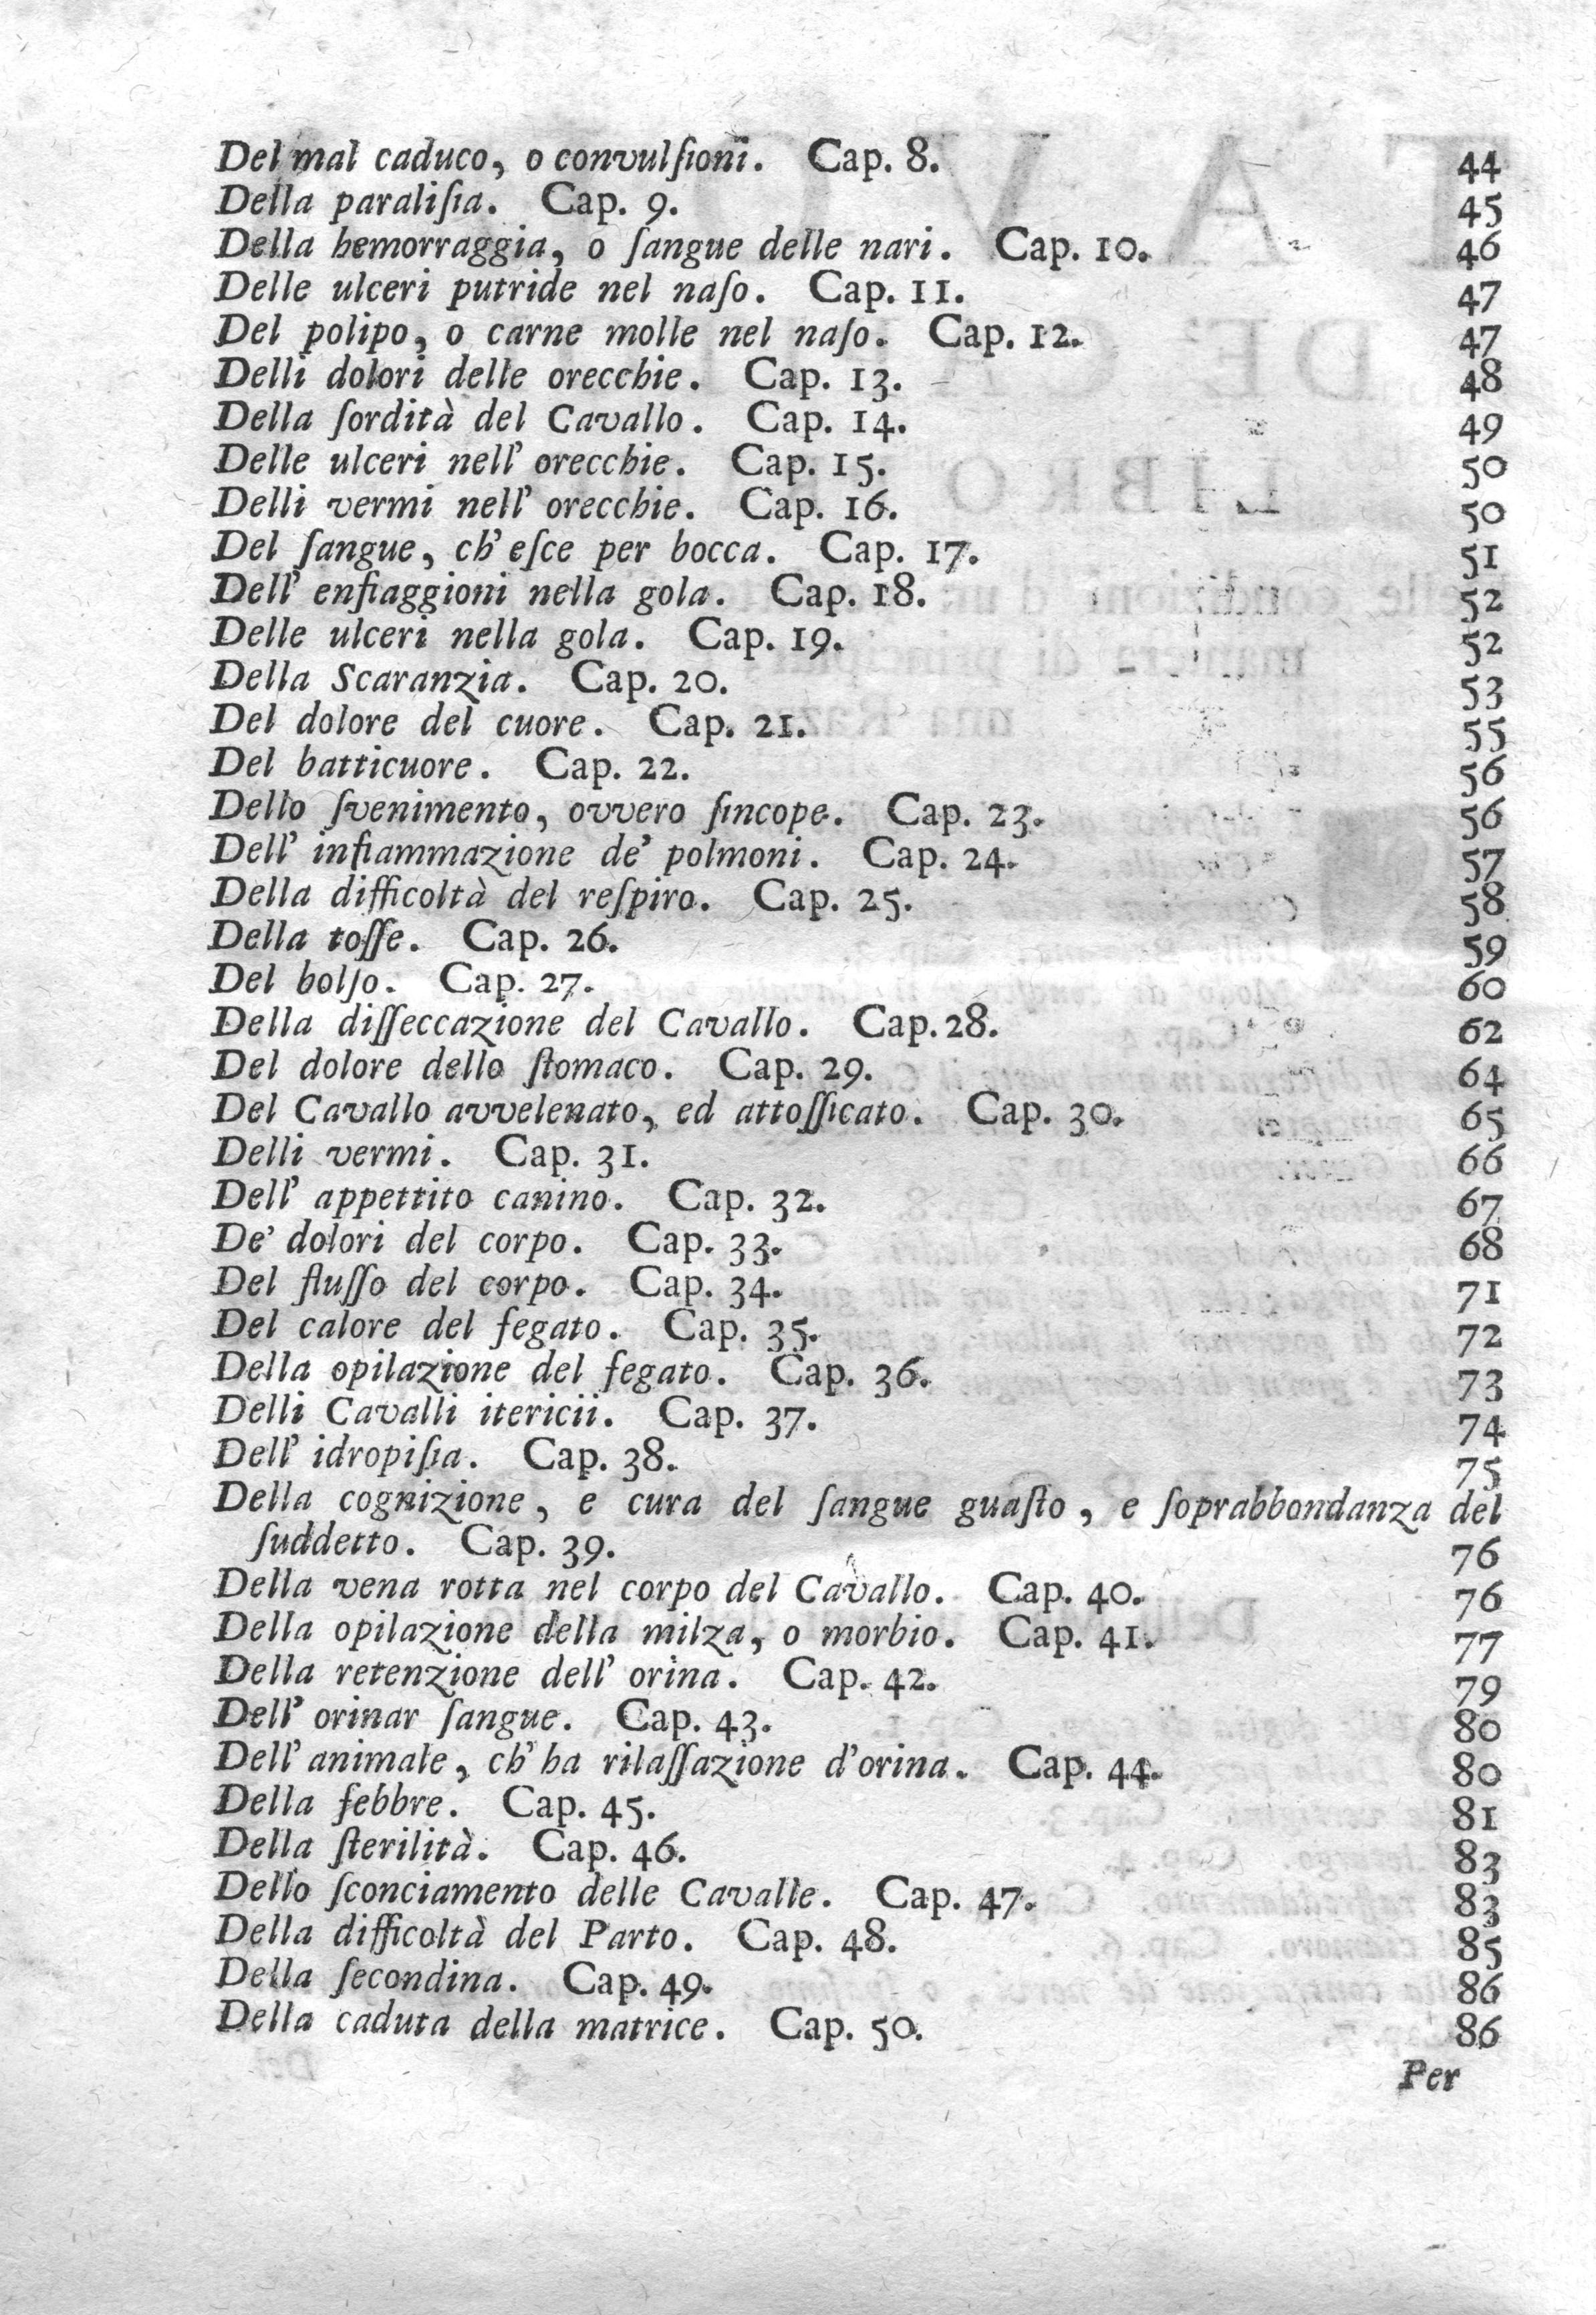 Del mal caduco, o convulſioni. Cap. 8. 44
Della paraliſia. Cap. 9. 45
Della hemorraggia, o ſangue delle nari. Cap. 10. 46
Delle ulceri putride nel naſo. Cap. 11. 47
Del polipo, o carne molle nel naſo. Cap. 12. 47
Delli dolori delle orecchie. Cap. 13. 48
Della ſordità del Cavallo. Cap. 14. 49
Delle ulceri nell' orecchie. Cap. 15. 50
Delli vermi nell' orecchie. Cap. 16. 50
Del ſangue, ch' eſce per bocca. Cap. 17. 51
Dell' enfiaggioni nella gola. Cap. 18. 52
Delle ulceri nella gola. Cap. 19. 52
Della Scaranzia. Cap. 20. 53
Del dolore del cuore. Cap. 21. 55
Del batticuore. Cap. 22. 56
Dello ſvenimento, ovvero ſincope. Cap. 23. 56
Dell' infiammazione de' polmoni. Cap. 24. 57
Della difficoltà del reſpiro. Cap. 25. 58
Della toſſe. Cap. 26. 59
Del bolſo. Cap. 27. 60
Della diſſeccazione del Cavallo. Cap. 28. 62
Del dolore dello ſtomaco. Cap. 29. 64
Del Cavallo avvelenato, ed attoſſicato. Cap. 30. 65
Delli vermi. Cap. 31. 66
Dell' appettito canino. Cap. 32. 67
De' dolori del corpo. Cap. 33. 68
Del fluſſo del corpo. Cap. 34. 71
Del calore del fegato. Cap. 35. 72
Della opilazione del fegato. Cap. 36. 73
Delli Cavalli itericii. Cap. 37. 74
Dell' idropiſia. Cap. 38. 75
Della cognizione, e cura del ſangue guaſto, e ſoprabbondanza del
ſuddetto. Cap. 39. 76
Della vena rotta nel corpo del Cavallo. Cap. 40. 76
Della opilazione della milza, o morbio. Cap. 41. 77
Della retenzione dell' orina. Cap. 42. 79
Dell' orinar ſangue. Cap. 43. 80
Dell' animale, ch' ha rilaſſazione d'orina. Cap. 44. 80
Della febbre. Cap. 45. 81
Della ſterilità. Cap. 46. 83
Dello ſconciamento delle Cavalle. Cap. 47. 83
Della difficoltà del Parto. Cap. 48. 85
Della ſecondina. Cap. 49. 86
Della caduta della matrice. Cap. 50. 86
Per